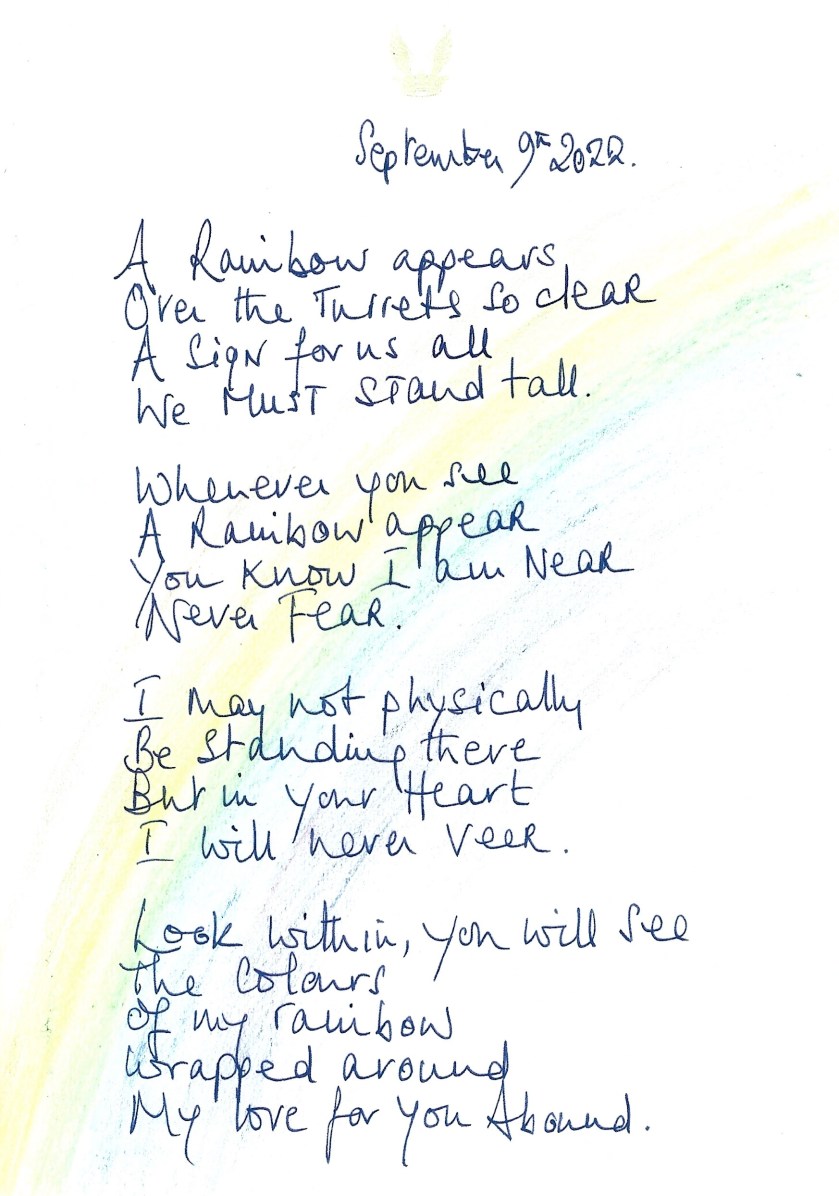 September 9th 2022.
A Rainbow appears
Over the Turrets so clear
A Sign for us all
We MUST STand tall.
Whenever you see
A Rainbow appear
You Know I am Near
Never Fear.
I may not physically
Be Standing there
But in your Heart
I will never Veer.
Look within, you will see
The Colours
of my rainbow
wrapped around
My love for you Abound.